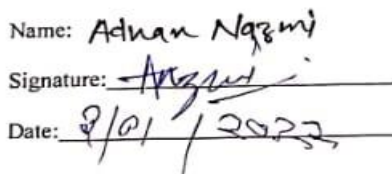 Name: Adnan Nazmi
Signature:
Date: /01/2022